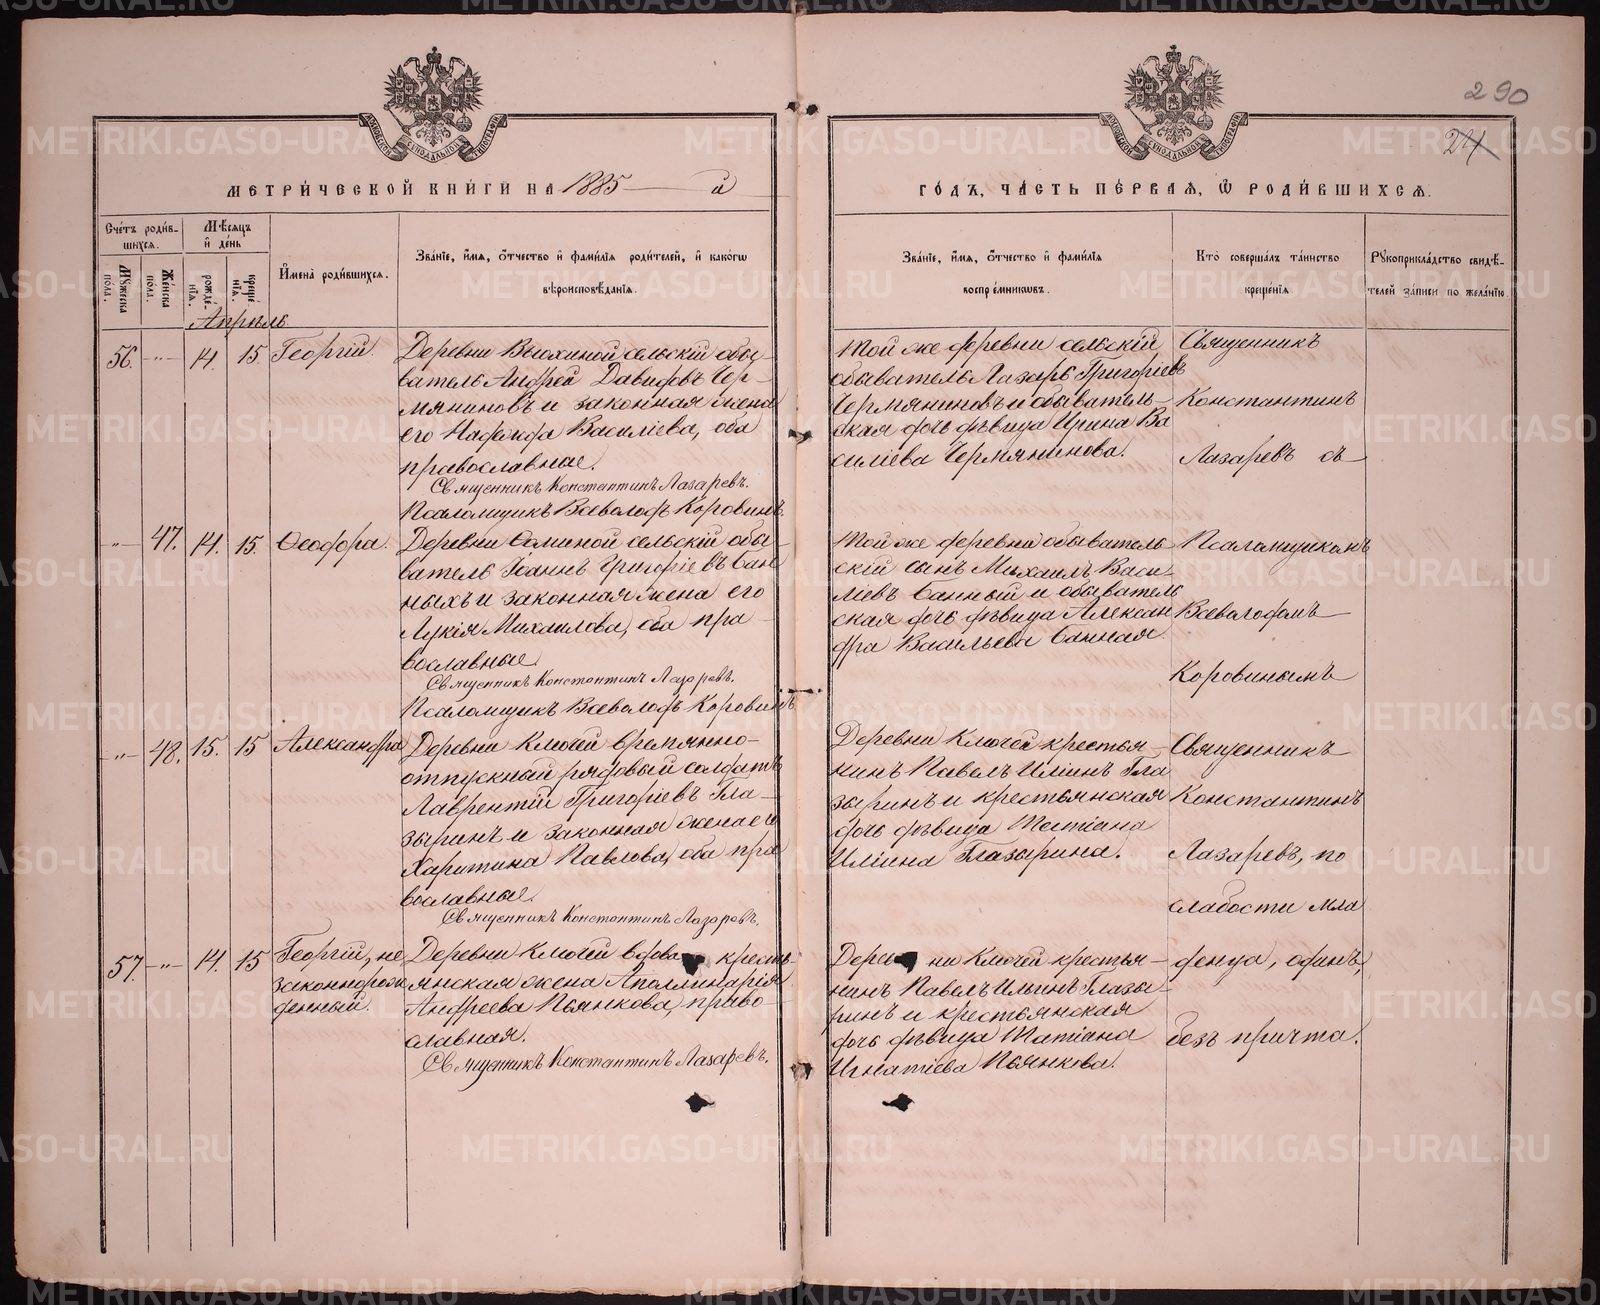 290
24
МОСКОВСКОЙ СѴНОДАЛЬНОЙ ТИПОГРАФІИ
МОСКОВСКОЙ СѴНОДАЛЬНОЙ ТИПОГРАФІИ
МЕТРИ́ЧЕСКОЙ КНИ́ГИ НА 1885 й
ГО́ДЪ, ЧА́СТЬ ПЕ́РВАЯ, Ѡ РОДИ́ВШИХСЯ.
Сче́тъ роди́в-
шихся.
Мѣ́сяцъ
и҆ де́нь
И҆мена̀ роди́вшихся.
Зва́нїе, и҆́мя, ѻ҆́тчество и҆ фами́лїя роди́телей, и҆ како́гѡ
вѣроисповѣ́данїя.
Му́жеска по́ла.
Же́нска по́ла.
рожде́-
нїя.
креще́-
нїя.
Зва́нїе, и҆́мя, ѻ҆́тчество и҆ фами́лїя
воспрїе́мникѡвъ.
Кто̀ соверша́лъ та́инство
креще́нїя.
Рꙋкоприкла́дство свидѣ́-
телей за́писи по жела́нїю.
Апрѣль
56. -„- 14. 15. Георгій.
Деревни Вьюхиной сельскій обы-
ватель Андрей Давидовъ Чер-
мяниновъ и законная жена
его Надежда Василіева, оба
православные.
Священникъ Константинъ Лазаревъ.
Псаломщикъ Всеволодъ Коровинъ
Той же деревни сельскій
обыватель Лазарь Григоріевъ
Чермяниновъ и обыватель-
ская дочь дѣвица Ирина Ва
силіева Чермянинова.
Священникъ
Константинъ
Лазаревъ съ
-„- 47. 14. 15. Ѳеодора.
Деревни сельскій обы-
ватель Іоаннъ Григоріевъ Бан
ныхъ и законная жена его
Лукія Михаилова, оба пра
вославные.
Священникъ Константинъ Лазаревъ.
Псаломщикъ Всеволодъ Коровинъ
Той же деревни обыватель
скій сынъ Михаилъ Васи-
ліевъ Банный и обыватель
ская дочь дѣвица Алексан
дра Васильева Банная
Псаломщикомъ
Всеволодомъ
Коровинымъ
-„- 48. 15. 15 Александра
Деревни Ключей времянно-
отпускный рядовый солдатъ
Лаврентій Григоріевъ Гла-
зыринъ и законная жена его
Харитина Павлова, оба пра
вославные.
Священникъ Константинъ Лазаревъ.
Деревни Ключей крестья-
нинъ Павелъ Иліинъ Гла
зыринъ и крестьянская
дочь дѣвица Татіана
Иліина Глазырина.
Священникъ
Константинъ
Лазаревъ, по
слабости мла
57. -„- 14. 15 Георгій, не
законнорож
денный.
Деревни Ключей вдова кресть
янская жена Аполлинарія
Андреева Пьянкова, право-
славная.
Священникъ Константинъ Лазаревъ.
Дерев ни Ключей крестья-
нинъ Павелъ Ильинъ Глазы-
ринъ и крестьянская
дочь дѣвица Татіана
Игнатіева Пьянкова.
денца, одинъ,
безъ причта.
METRIKI.GASO-URAL.RU